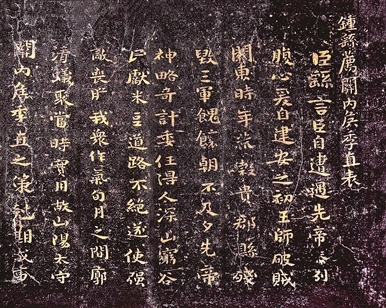 鍾繇薦關內侯季直表
臣繇言臣自遭遇先帝忝列
腹心爰自建安之初王師破賊
關東時年荒穀貴郡縣殘
毀三軍餽饟朝不及夕先帝
神略奇計委任得人深山窮谷
民獻米豆道路不絕遂使強
敵喪膽我眾作氣旬月之間廓
清蟻聚當時實用故山陽太守
關內侯季直之策剋期成事